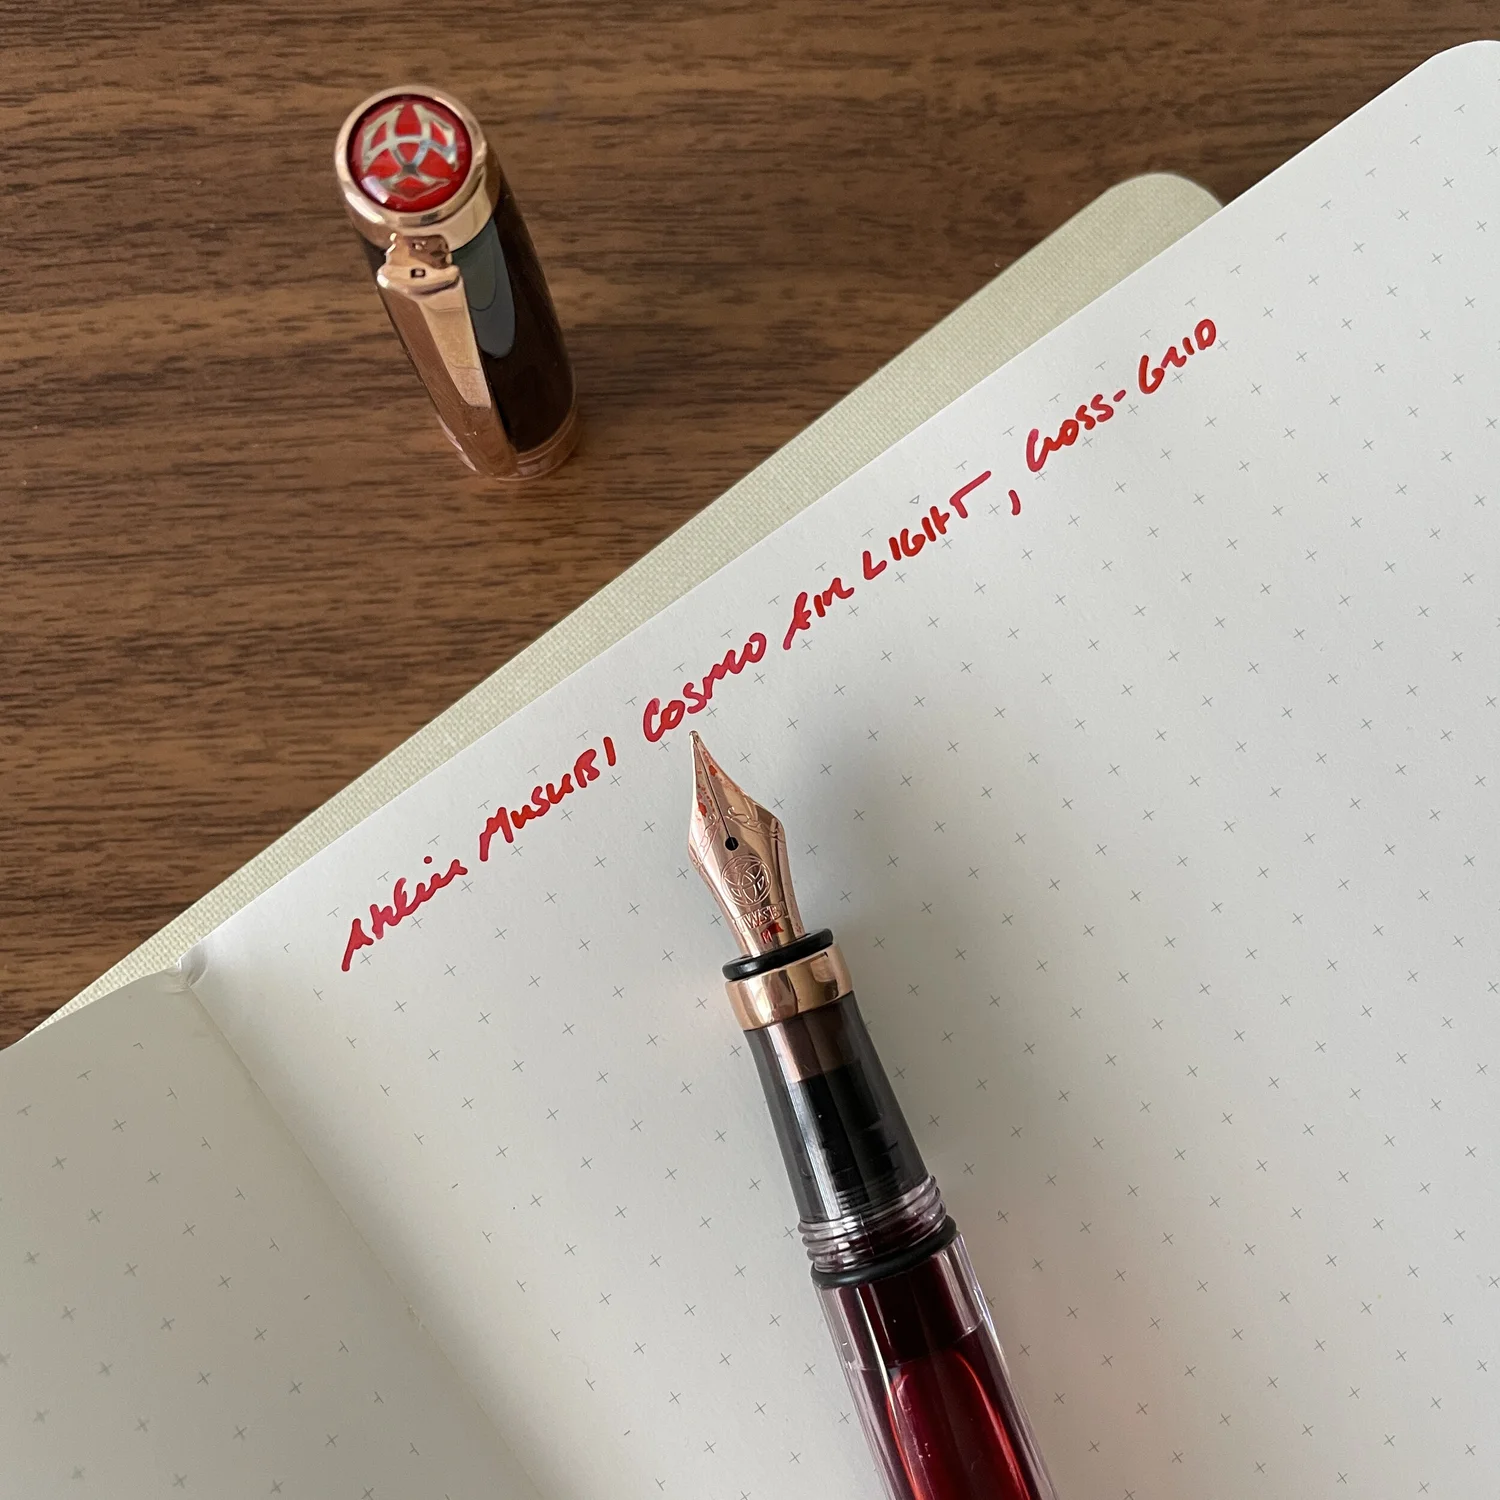 Atelier Musubi Cosmo Air Light, Cross-Grid
TWSBI